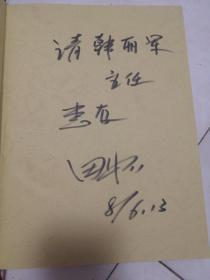 请韩丽军
主任
惠存
8/6.13